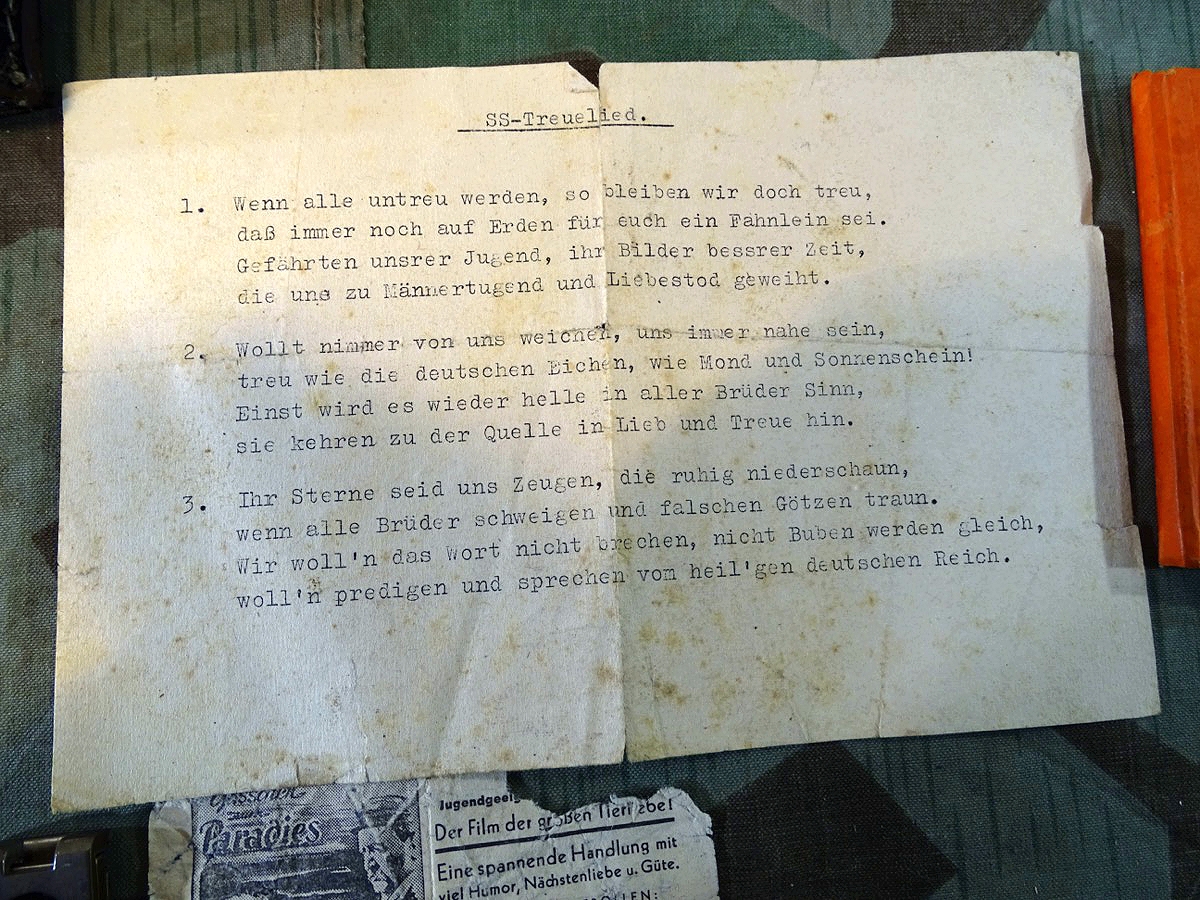 SS-Treuelied.
1. Wenn alle untreu werden, so bleiben wir doch treu,
daß immer noch auf Erden für euch ein Fähnlein sei.
Gefährten unsrer Jugend, ihr Bilder bessrer Zeit,
die uns zu Männertugend und Liebestod geweiht.
2. Wollt nimmer von uns weichen, uns immer nahe sein,
treu wie die deutschen Eichen, wie Mond und Sonnenschein!
Einst wird es wieder helle in aller Brüder Sinn,
sie kehren zu der Quelle in Lieb und Treue hin.
3. Ihr Sterne seid uns Zeugen, die ruhig niederschaun,
wenn alle Brüder schweigen und falschen Götzen traun.
Wir woll'n das Wort nicht brechen, nicht Buben werden gleich,
woll'n predigen und sprechen vom heil'gen deutschen Reich.
Paradies
Der Film der großen Tierliebe!
Eine spannende Handlung mit
viel Humor, Nächstenliebe u. Güte.